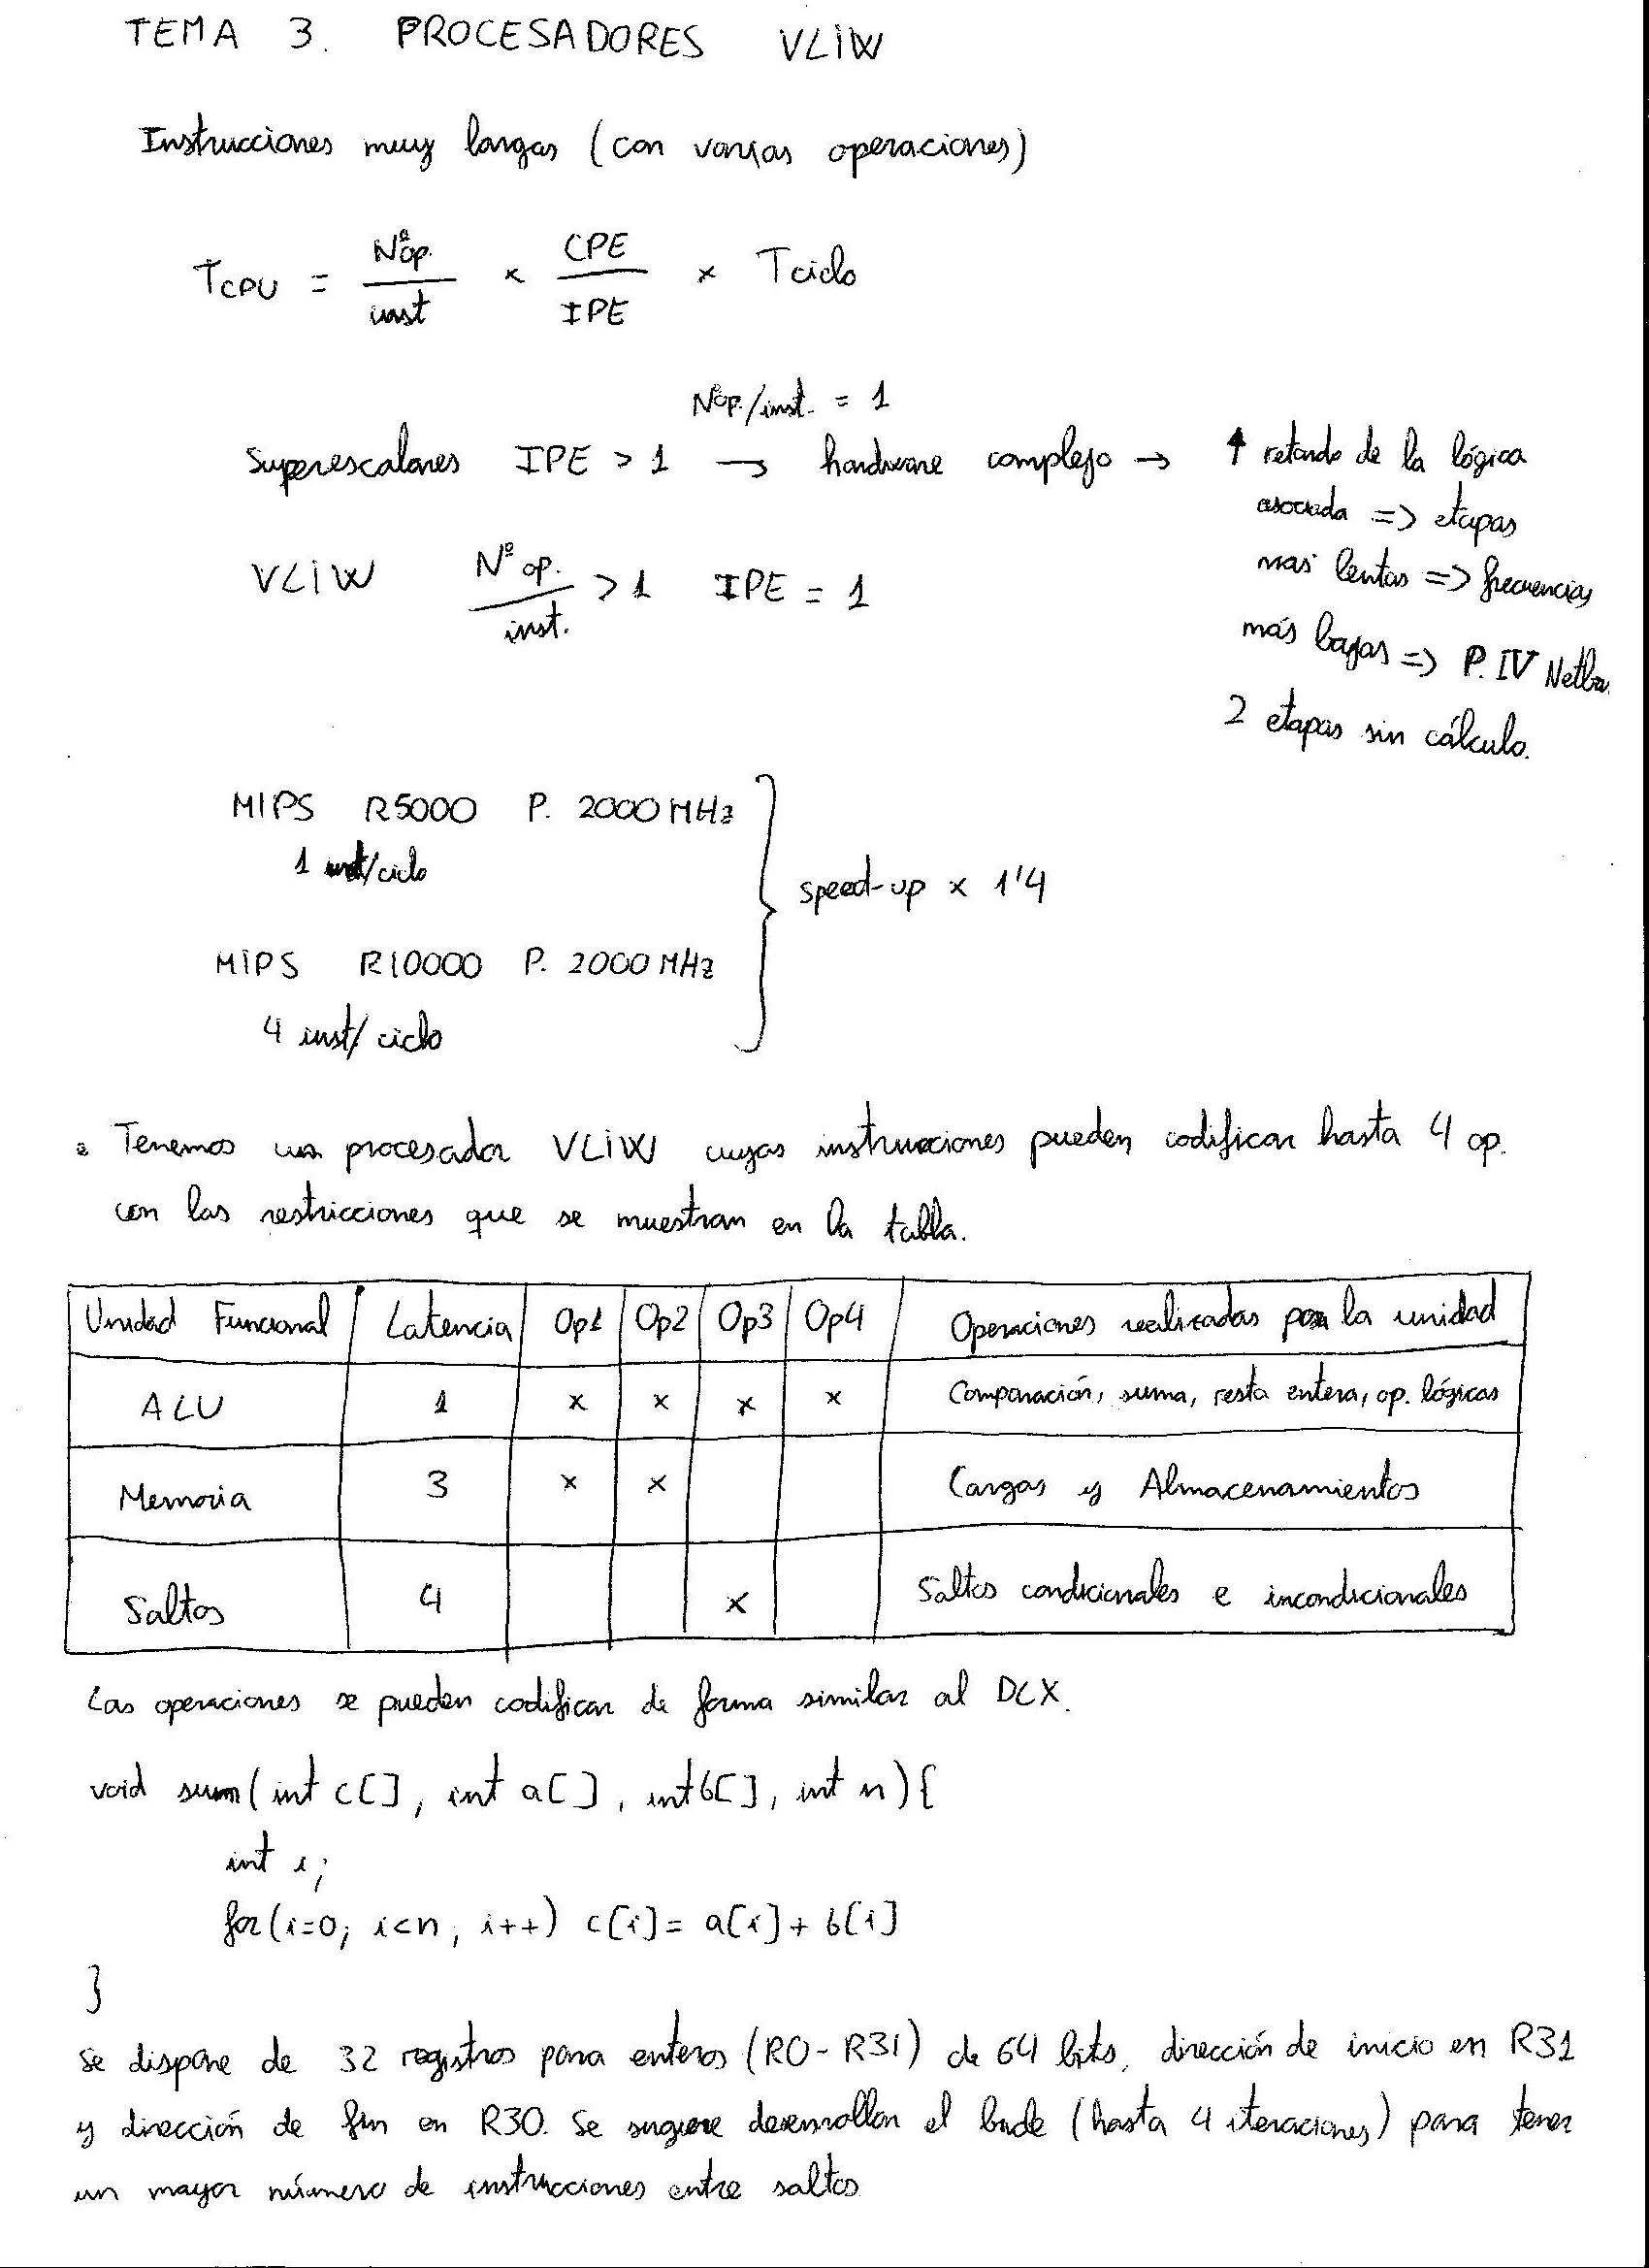 TEMA 3. PROCESADORES VLIW
Instrucciones muy largas (con varias operaciones)
TCPU = Nºop./inst × CPE/IPE × Tciclo
Nºop./inst. = 1
Superescalares IPE > 1 → hardware complejo → ↑ retardo de la lógica
asociada => etapas
más lentas => frecuencias
más bajas => P. IV Netbu.
2 etapas sin cálculo.
VLIW Nº op./inst. > 1 IPE = 1
MIPS R5000 P. 2000 MHz
1 inst/ciclo
speed-up × 1'4
MIPS R10000 P. 2000 MHz
4 inst/ciclo
Tenemos un procesador VLIW cuyas instrucciones pueden codificar hasta 4 op.
con las restricciones que se muestran en la tabla.
Unidad Funcional Latencia Op1 Op2 Op3 Op4 Operaciones realizadas por la unidad
ALU 1 x x x x Comparación, suma, resta entera, op. lógicas
Memoria 3 x x Cargas y Almacenamientos
Saltos 4 x Saltos condicionales e incondicionales
Las operaciones se pueden codificar de forma similar al DLX.
void sum(int c[], int a[], int b[], int n){
int i;
for(i=0; i<n; i++) c[i]= a[i]+ b[i]
}
Se dispone de 32 registros para enteros (R0-R31) de 64 bits, dirección de inicio en R31
y dirección de fin en R30. Se sugiere desenrollar el bucle (hasta 4 iteraciones) para tener
un mayor número de instrucciones entre saltos